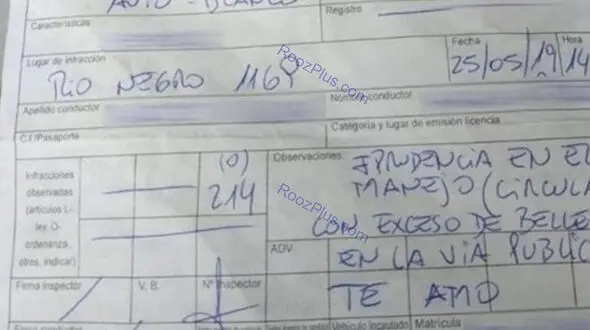 AUTO - BLANCO
Características
Registro
Lugar de infracción
Fecha
Hora
RIO NEGRO 1164
25/05/19 14
Apellido conductor
Nombre conductor
C.I/Pasaporte
Categoría y lugar de emisión licencia
Infracciones
observadas
(artículos L-
ley, O-
ordenanza,
otres, indicar)
(0)
214
Observaciones:
IPRUDENCIA EN EL
MANEJO (CIRCULA
CON EXCESO DE BELLE
ADV.
EN LA VIA PUBLIC
Firma inspector
V. B.
Nº Inspector
TE AMO
Firma conductor
Vehículo incautado
Matrícula
RoozPlus.com
RoozPlus.com
RoozPlus.com